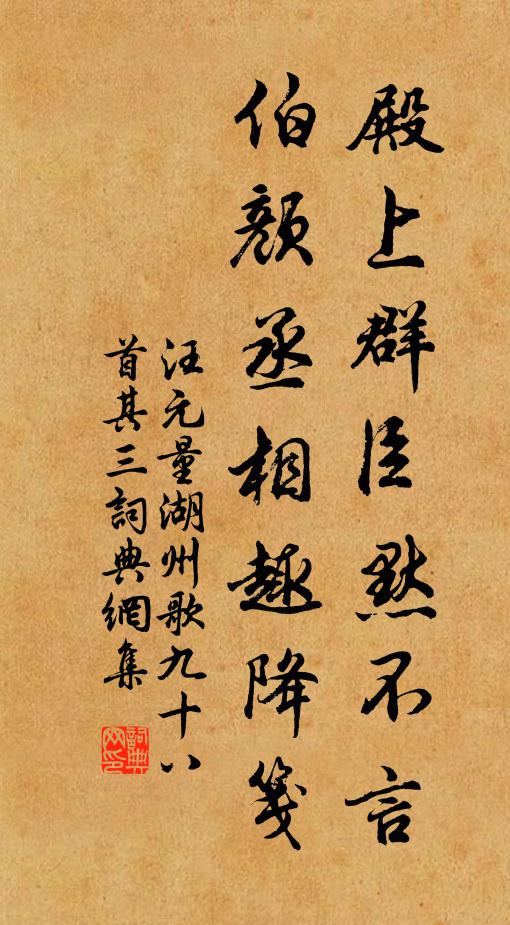 殿上群臣默不言
伯顏丞相趣降箋
汪元量湖州歌九十八
首其三詞典網集
詞典
网印